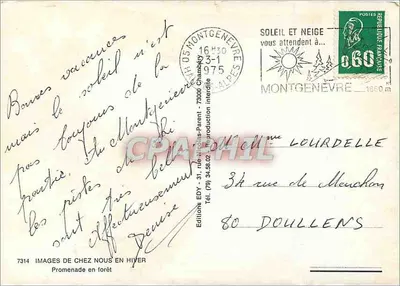 Bonnes vacances
mais le soleil n'est
pas toujours de la
partie. Au Montgenèvre
les pistes de ski
sont très belles
Affectueusement
Denise
7314 IMAGES DE CHEZ NOUS EN HIVER
Promenade en forêt
Editions EDY - 31, rue
Tél. (79) 34.58.02
reproduction interdite
05 MONTGENEVRE
16H30
3-1
1975
HTES-ALPES
SOLEIL ET NEIGE
vous attendent à...
MONTGENÈVRE
POSTES
0,60
REPUBLIQUE FRANCAISE
CPAPHIL
M. Mme LOURDELLE
34 rue de
80 DOULLENS